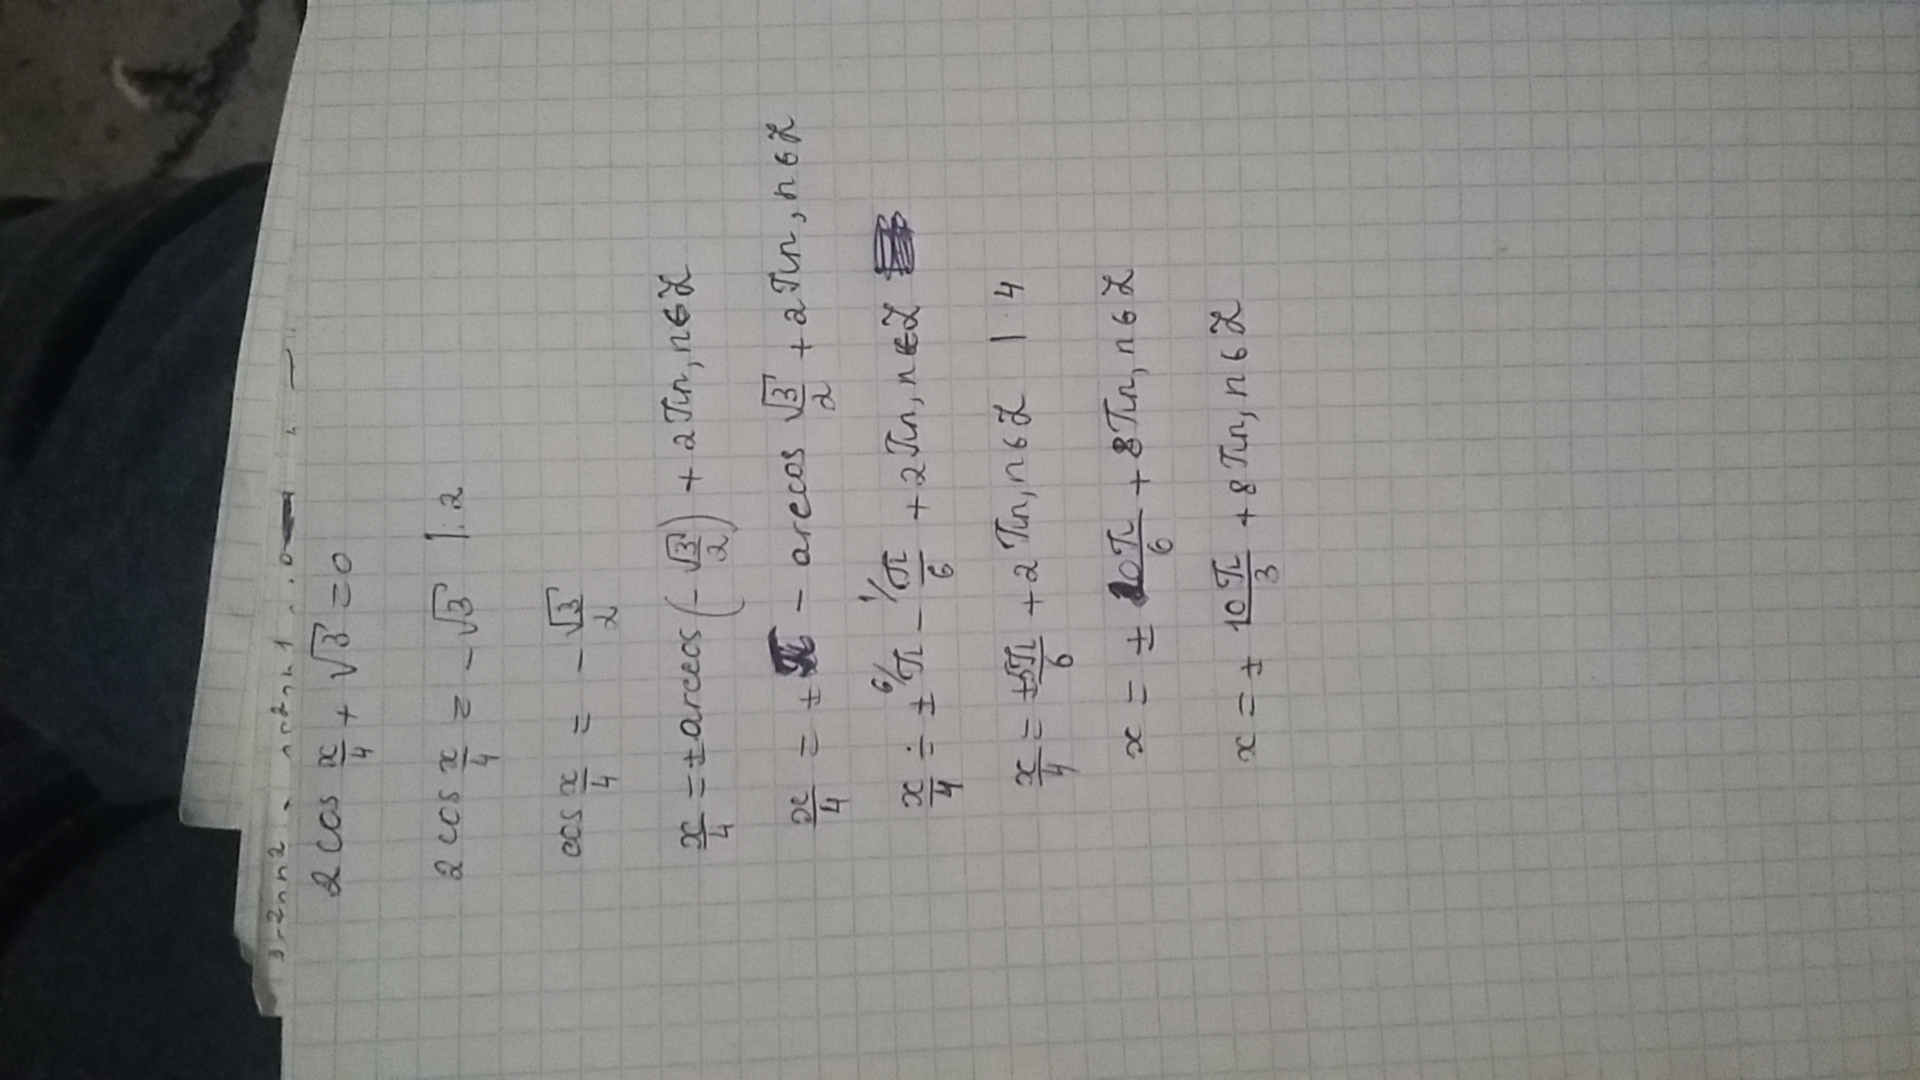 2 cos x/4 + √3 = 0
2 cos x/4 = - √3 | : 2
cos x/4 = - √3/2
x/4 = ± arccos (- √3/2) + 2πn, n∈Z
x/4 = ± π - arccos √3/2 + 2πn, n∈Z
x/4 = ± ⁶⁄π - ¹⁄π/6 + 2πn, n∈Z
x/4 = ± 5π/6 + 2πn, n∈Z | · 4
x = ± 20π/6 + 8πn, n∈Z
x = ± 10π/3 + 8πn, n∈Z